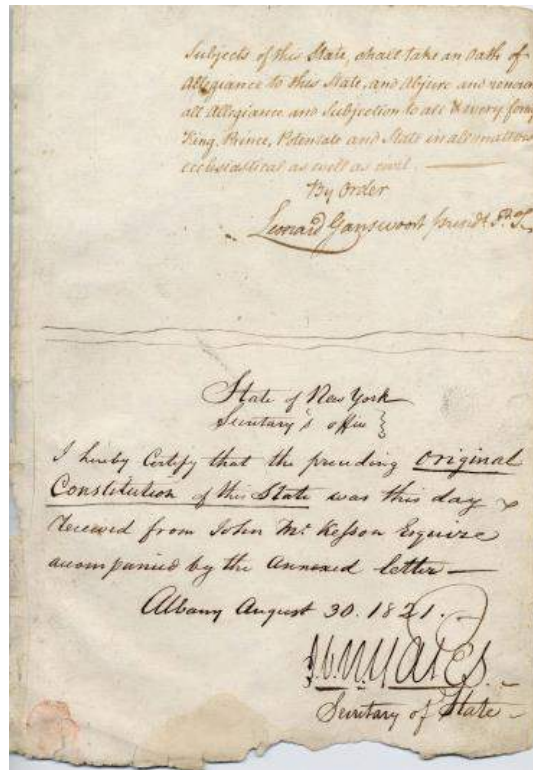 Subjects of this State, shall take an Oath of
Allegiance to this State, and Abjure and renoun
all Allegiance and Subjection to all & every forei
King, Prince, Potentate and State in all matters
ecclesiastical as well as civil.
By Order
Leonard Gansevoort Presidt
State of New York
Secretary's office }
I hereby Certify that the preceding original
Constitution of this State was this day
received from John Mc Kesson Esquire
accompanied by the Annexed letter —
Albany August 30. 1821.
J.V.N. YATES.
Secretary of State